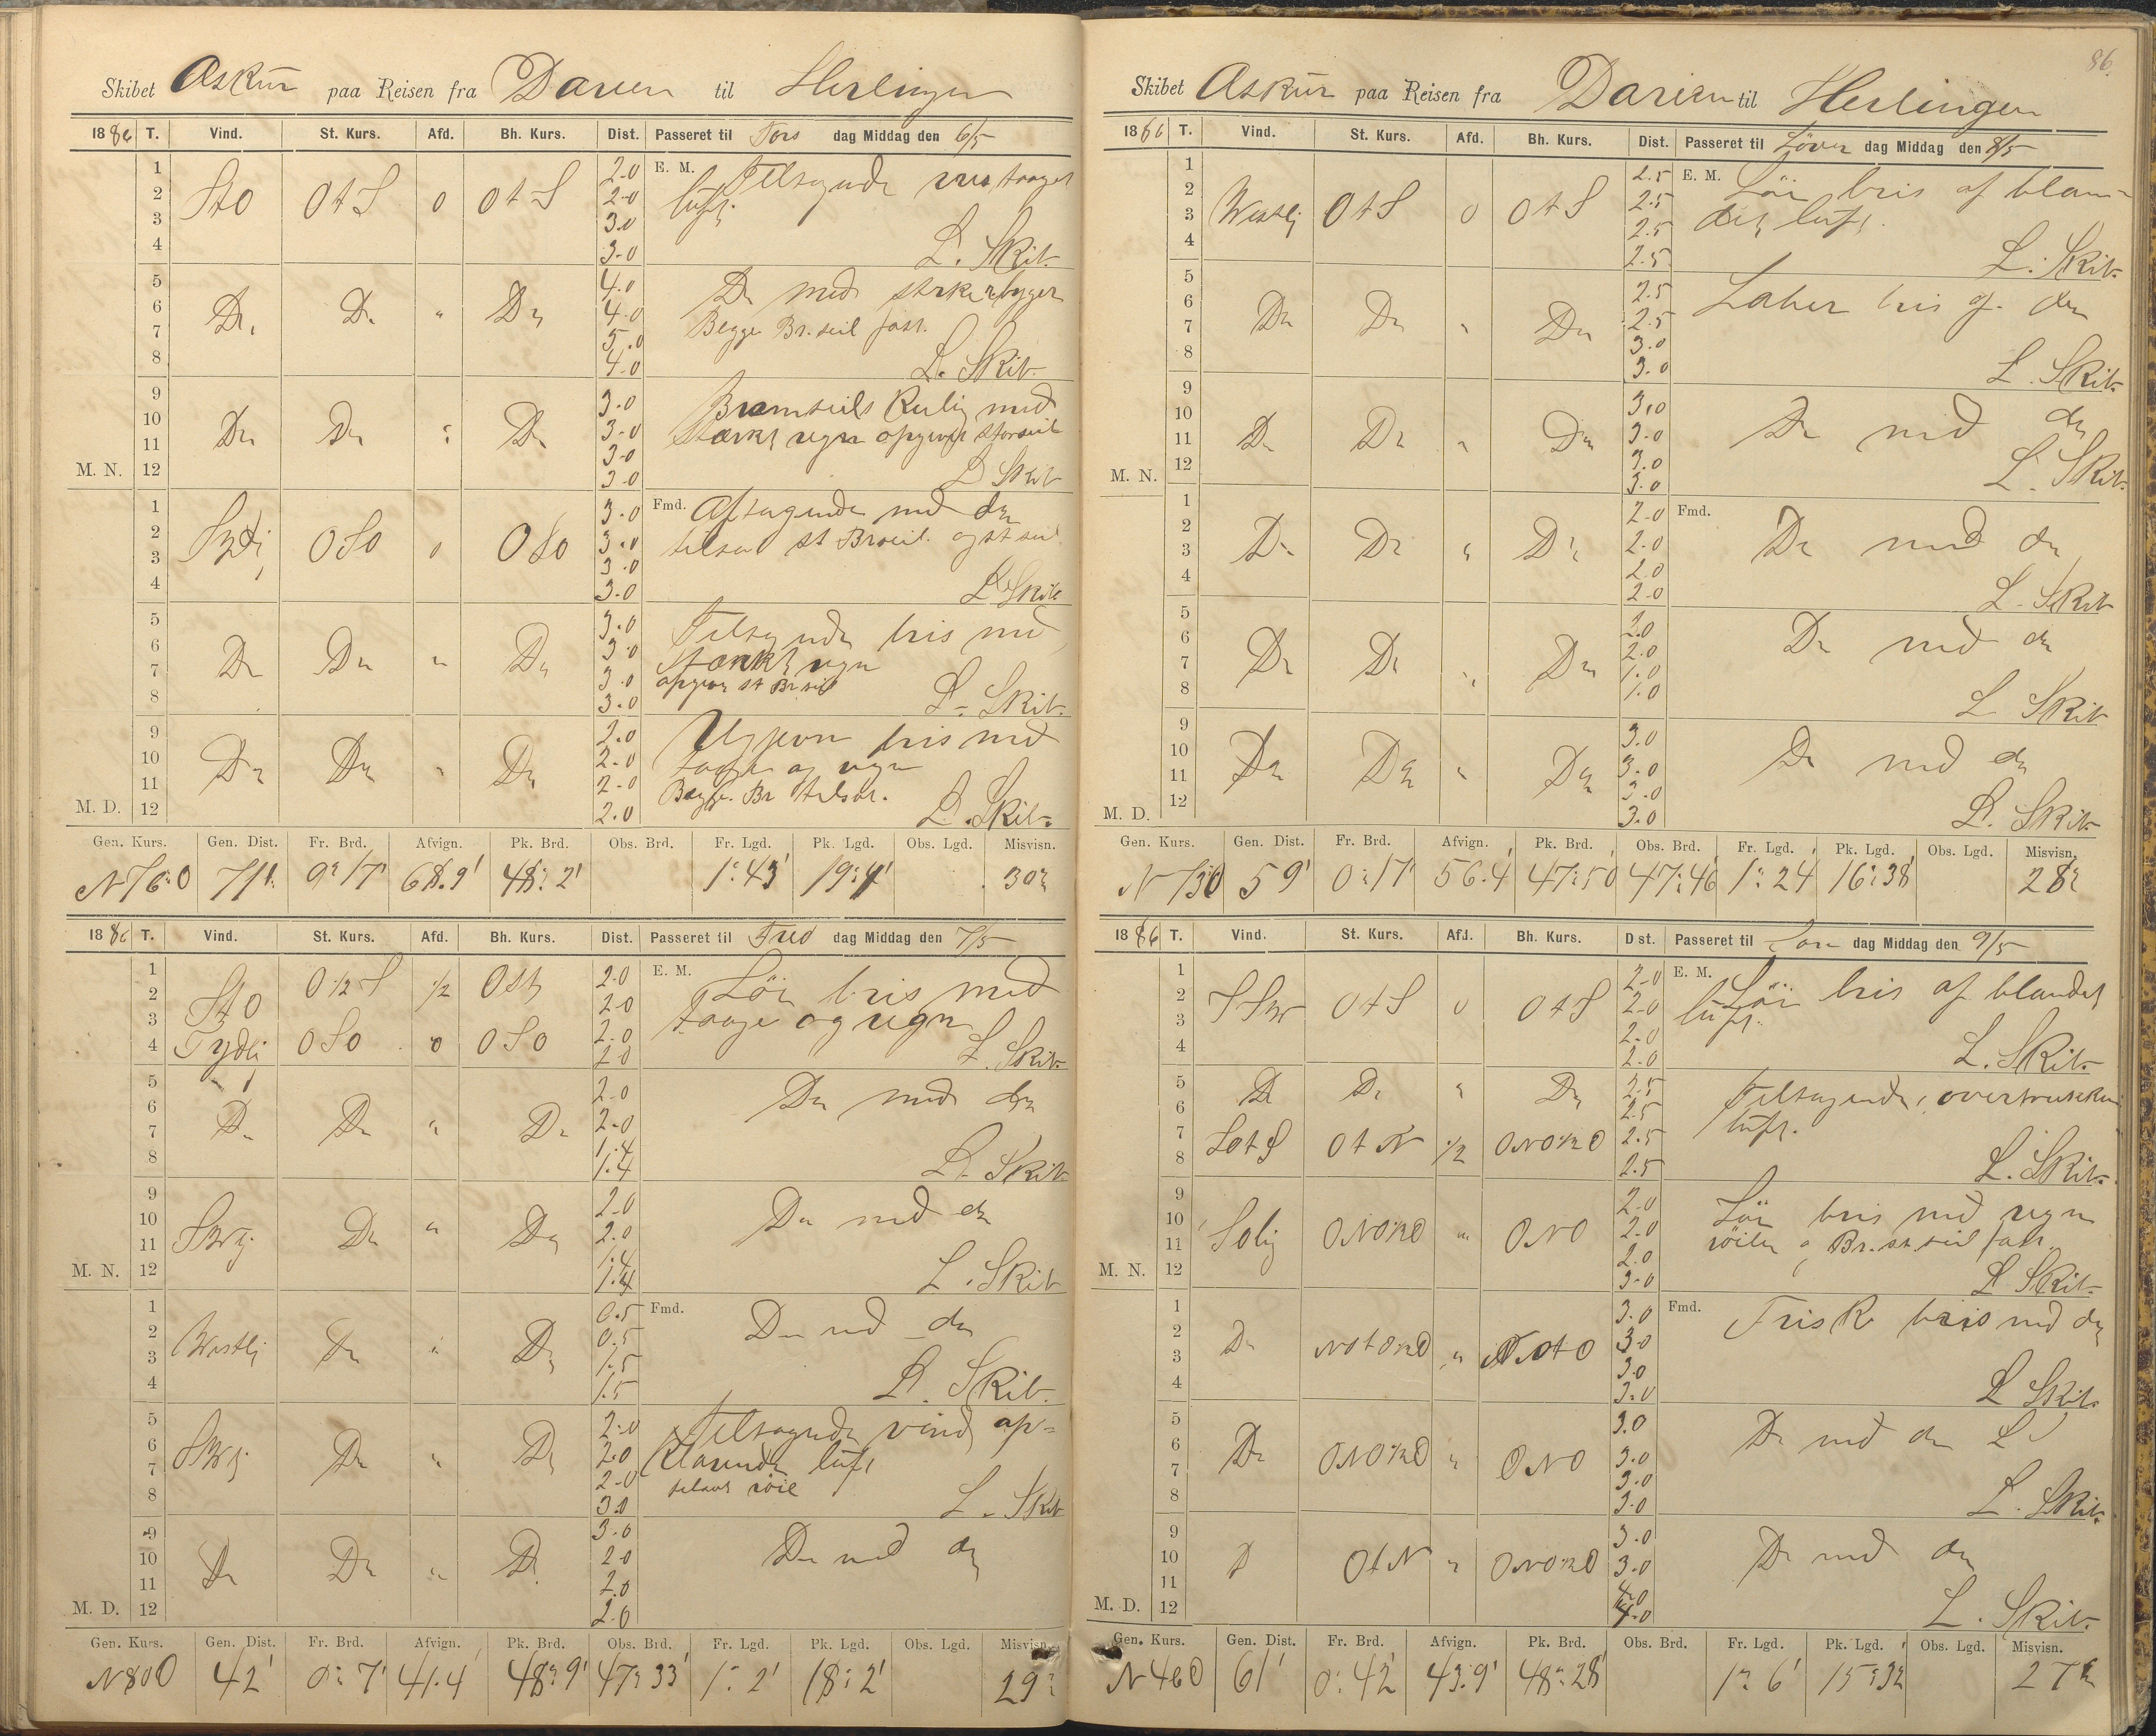 Skibet Askur paa Reisen fra Darien til Herlingen
1886 T. Vind. St. Kurs. Afd. Bh. Kurs. Dist. Passeret til Tors dag Middag den 6/5
1 2.0 E. M. Tiltagende bris taaget
2 StO OtS 0 OtS 2.0 luft.
3 3.0
4 3.0 L. Skib.
5 4.0 Do med sterke byger
6 Do Do " Do 4.0 Begge Br. seil fast.
7 5.0
8 4.0 L. Skib.
9 3.0 Bramseils Kuling med
10 Do Do " Do 3.0 stærkt regn opgivet storseil
11 3.0
M. N. 12 3.0 L Skib
1 3.0 Fmd. Aftagende med do
2 Sydlig OSO 0 OSO 3.0 tilsat st Br.seil og st seil
3 3.0
4 3.0 L Skib
5 3.0 Tiltagende bris med
6 Do Do " Do 3.0 stærkt regn
7 3.0 opgivet st Br seil
8 3.0 L. Skib.
9 2.0 Ugjevn bris med
10 Do Do " Do 2.0 taage og regn
11 2.0 Begge Br tilsat.
M. D. 12 2.0 L. Skib.
Gen. Kurs. Gen. Dist. Fr. Brd. Afvign. Pk. Brd. Obs. Brd. Fr. Lgd. Pk. Lgd. Obs. Lgd. Misvisn.
N76O 71' 0° 17' 68.9' 48° 2' 1° 43' 19° 4' 30°
1886 T. Vind. St. Kurs. Afd. Bh. Kurs. Dist. Passeret til Fre dag Middag den 7/5
1 O1/2S 1/2 Ost 2.0 E. M. Lör bris med
2 StO 2.0 taage og regn
3 2.0
4 Sydlig OSO 0 OSO 2.0 L. Skib.
5 2.0 Do med do
6 Do Do " Do 2.0
7 1.4
8 1.4 L. Skib
9 2.0 Do med do
10 SWlig Do " Do 2.0
11 1.4
M. N. 12 1.4 L. Skib
1 0.5 Fmd. Do med do
2 Westlig Do " Do 0.5
3 1.5
4 1.5 L. Skib.
5 2.0 Tiltagende vind op=
6 SWlig Do " Do 2.0 klarende luft
7 2.0 tilsat röil
8 3.0 L. Skib
9 3.0 Do med do
10 Do Do " Do 2.0
11 2.0
M. D. 12 2.0
Gen. Kurs. Gen. Dist. Fr. Brd. Afvign. Pk. Brd. Obs. Brd. Fr. Lgd. Pk. Lgd. Obs. Lgd. Misvisn.
N80O 42' 0° 7' 41.4 48° 9' 47° 33' 1° 2' 18° 2' 29°
86.
Skibet Askur paa Reisen fra Darien til Herlingen
1886 T. Vind. St. Kurs. Afd. Bh. Kurs. Dist. Passeret til Löver dag Middag den 8/5
1 2.5 E. M. Lör bris af blan=
2 Westlig OtS 0 OtS 2.5 det luft.
3 2.5
4 2.5 L. Skib.
5 2.5 Laber bris og do
6 Do Do " Do 2.5
7 3.0
8 3.0 L. Skib.
9 3.0 Do med do
10 Do Do " Do 3.0
11 3.0
M. N. 12 3.0 L. Skib.
1 2.0 Fmd. Do med do
2 Do Do " Do 2.0
3 2.0
4 2.0 L. Skib
5 2.0 Do med do
6 Do Do " Do 2.0
7 1.0
8 1.0 L Skib
9 3.0 Do med do
10 Do Do " Do 3.0
11 3.0
M. D. 12 3.0 L. Skib.
Gen. Kurs. Gen. Dist. Fr. Brd. Afvign. Pk. Brd. Obs. Brd. Fr. Lgd. Pk. Lgd. Obs. Lgd. Misvisn.
N73O 59' 0° 17' 56.4' 47° 50' 47° 46' 1° 24 16° 38' 28°
1886 T. Vind. St. Kurs. Afd. Bh. Kurs. Dist. Passeret til Søn dag Middag den 9/5
1 2.0 E. M. Lör bris af blandet
2 SSW OtS 0 OtS 2.0 luft.
3 2.0
4 2.0 L. Skib.
5 Do Do " Do 2.5 Tiltagende, overtrukken
6 2.5 luft.
7 SOtS OtN 1/2 ONO1/2O 2.5
8 2.5 L. Skib.
9 2.0 Lör bris med regn
10 SOlig ONO1/2O " ONO 2.0 röiler og Br. st. seil fast
11 2.0
M. N. 12 3.0 L Skib.
1 3.0 Fmd. Frisk bris med do
2 Do NOtO1/2O " NOtO 3.0
3 3.0
4 3.0 L Skib.
5 3.0 Do med do L
6 Do ONO1/2O " ONO 3.0
7 3.0
8 3.0 L. Skib.
9 3.0 Do med do
10 D OtN " ONO1/2O 3.0
11 4.0
M. D. 12 4.0 L. Skib.
Gen. Kurs. Gen. Dist. Fr. Brd. Afvign. Pk. Brd. Obs. Brd. Fr. Lgd. Pk. Lgd. Obs. Lgd. Misvisn.
N46O 61' 0° 42' 43.9' 48° 28' 1° 6' 15° 32 27°